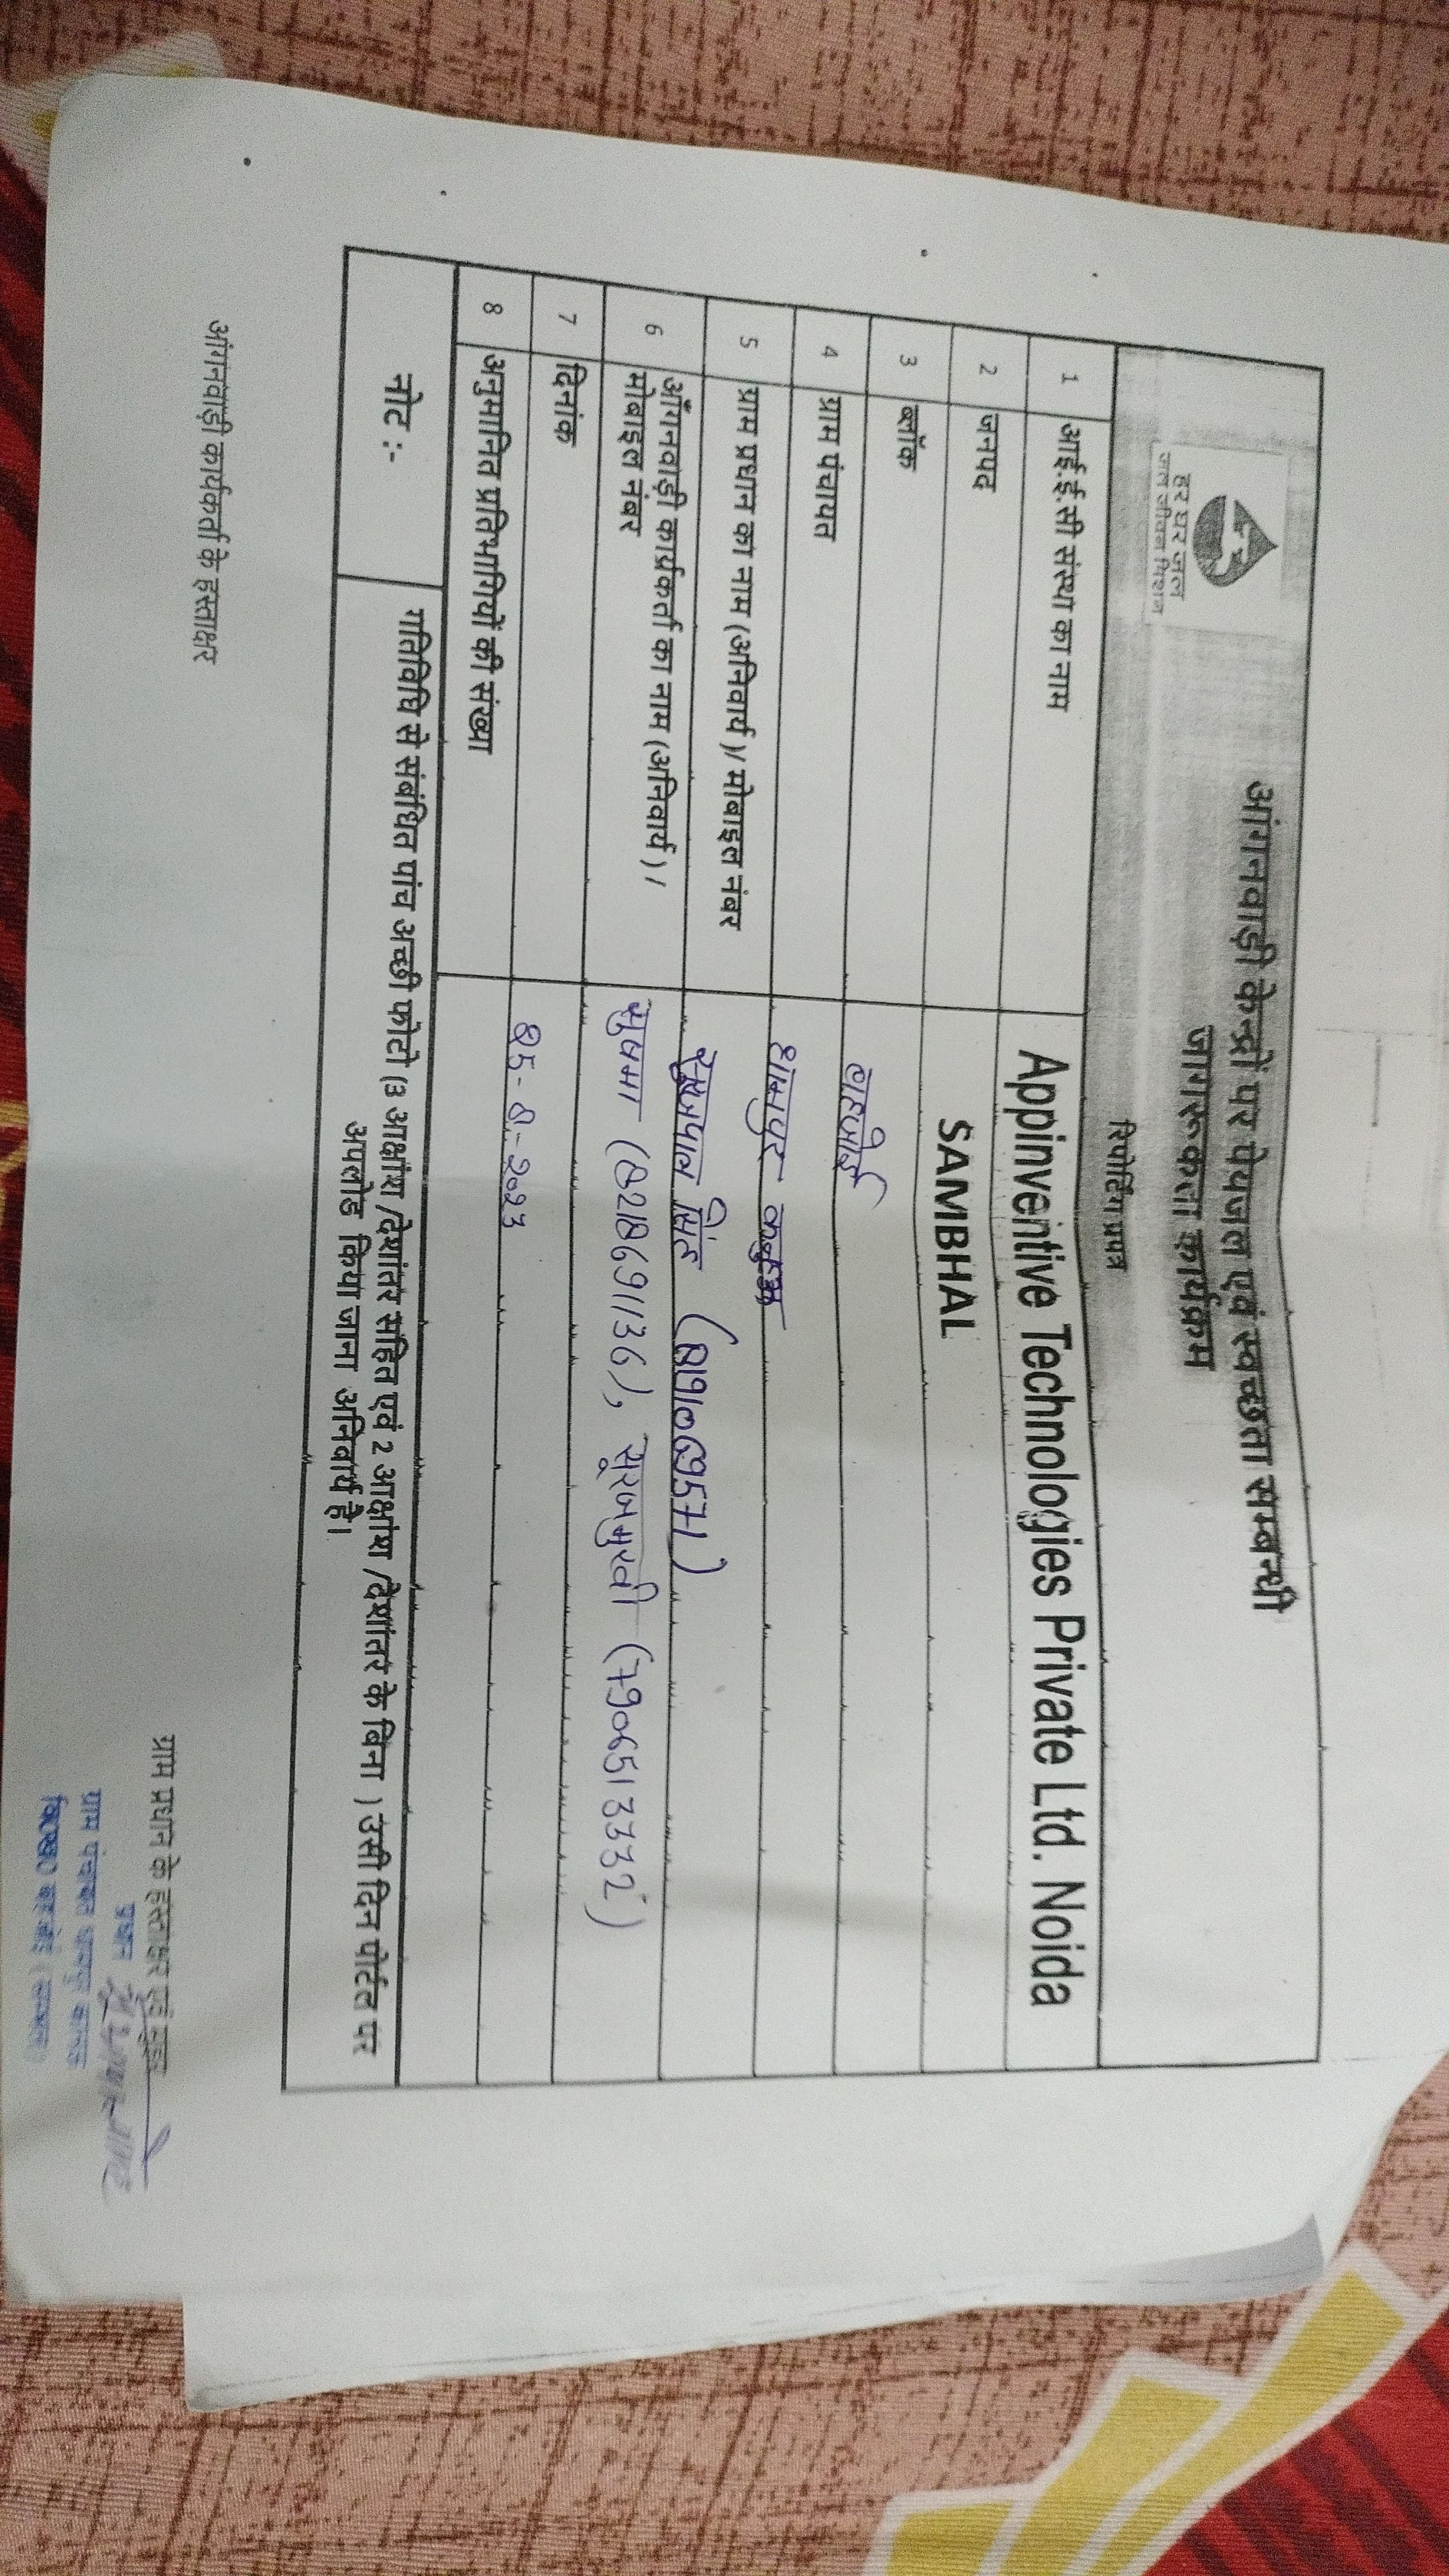 आंगनवाड़ी केन्द्रों पर पेयजल एवं स्वच्छता सम्बन्धी
जागरूकता कार्यक्रम
हर घर जल
जल जीवन मिशन
रिपोर्टिंग प्रपत्र
1 आई.ई.सी संस्था का नाम Appinventive Technologies Private Ltd. Noida
2 जनपद SAMBHAL
3 ब्लॉक बहजोई
4 ग्राम पंचायत धामपुर
5 ग्राम प्रधान का नाम (अनिवार्य)/ मोबाइल नंबर सिंह
6 आँगनवाड़ी कार्यकर्ता का नाम (अनिवार्य) /
मोबाइल नंबर
सुषमा (8218691136), सूरजमुखी (7906513332)
7 दिनांक 25-8-2023
8 अनुमानित प्रतिभागियों की संख्या
नोट :-
गतिविधि से संबंधित पांच अच्छी फोटो (3 आक्षांश /देशांतर सहित एवं 2 आक्षांश /देशांतर के बिना ) उसी दिन पोर्टल पर
अपलोड किया जाना अनिवार्य है।
आंगनवाड़ी कार्यकर्ता के हस्ताक्षर
ग्राम प्रधान के हस्ताक्षर एवं मुहर
प्रधान
ग्राम पंचायत